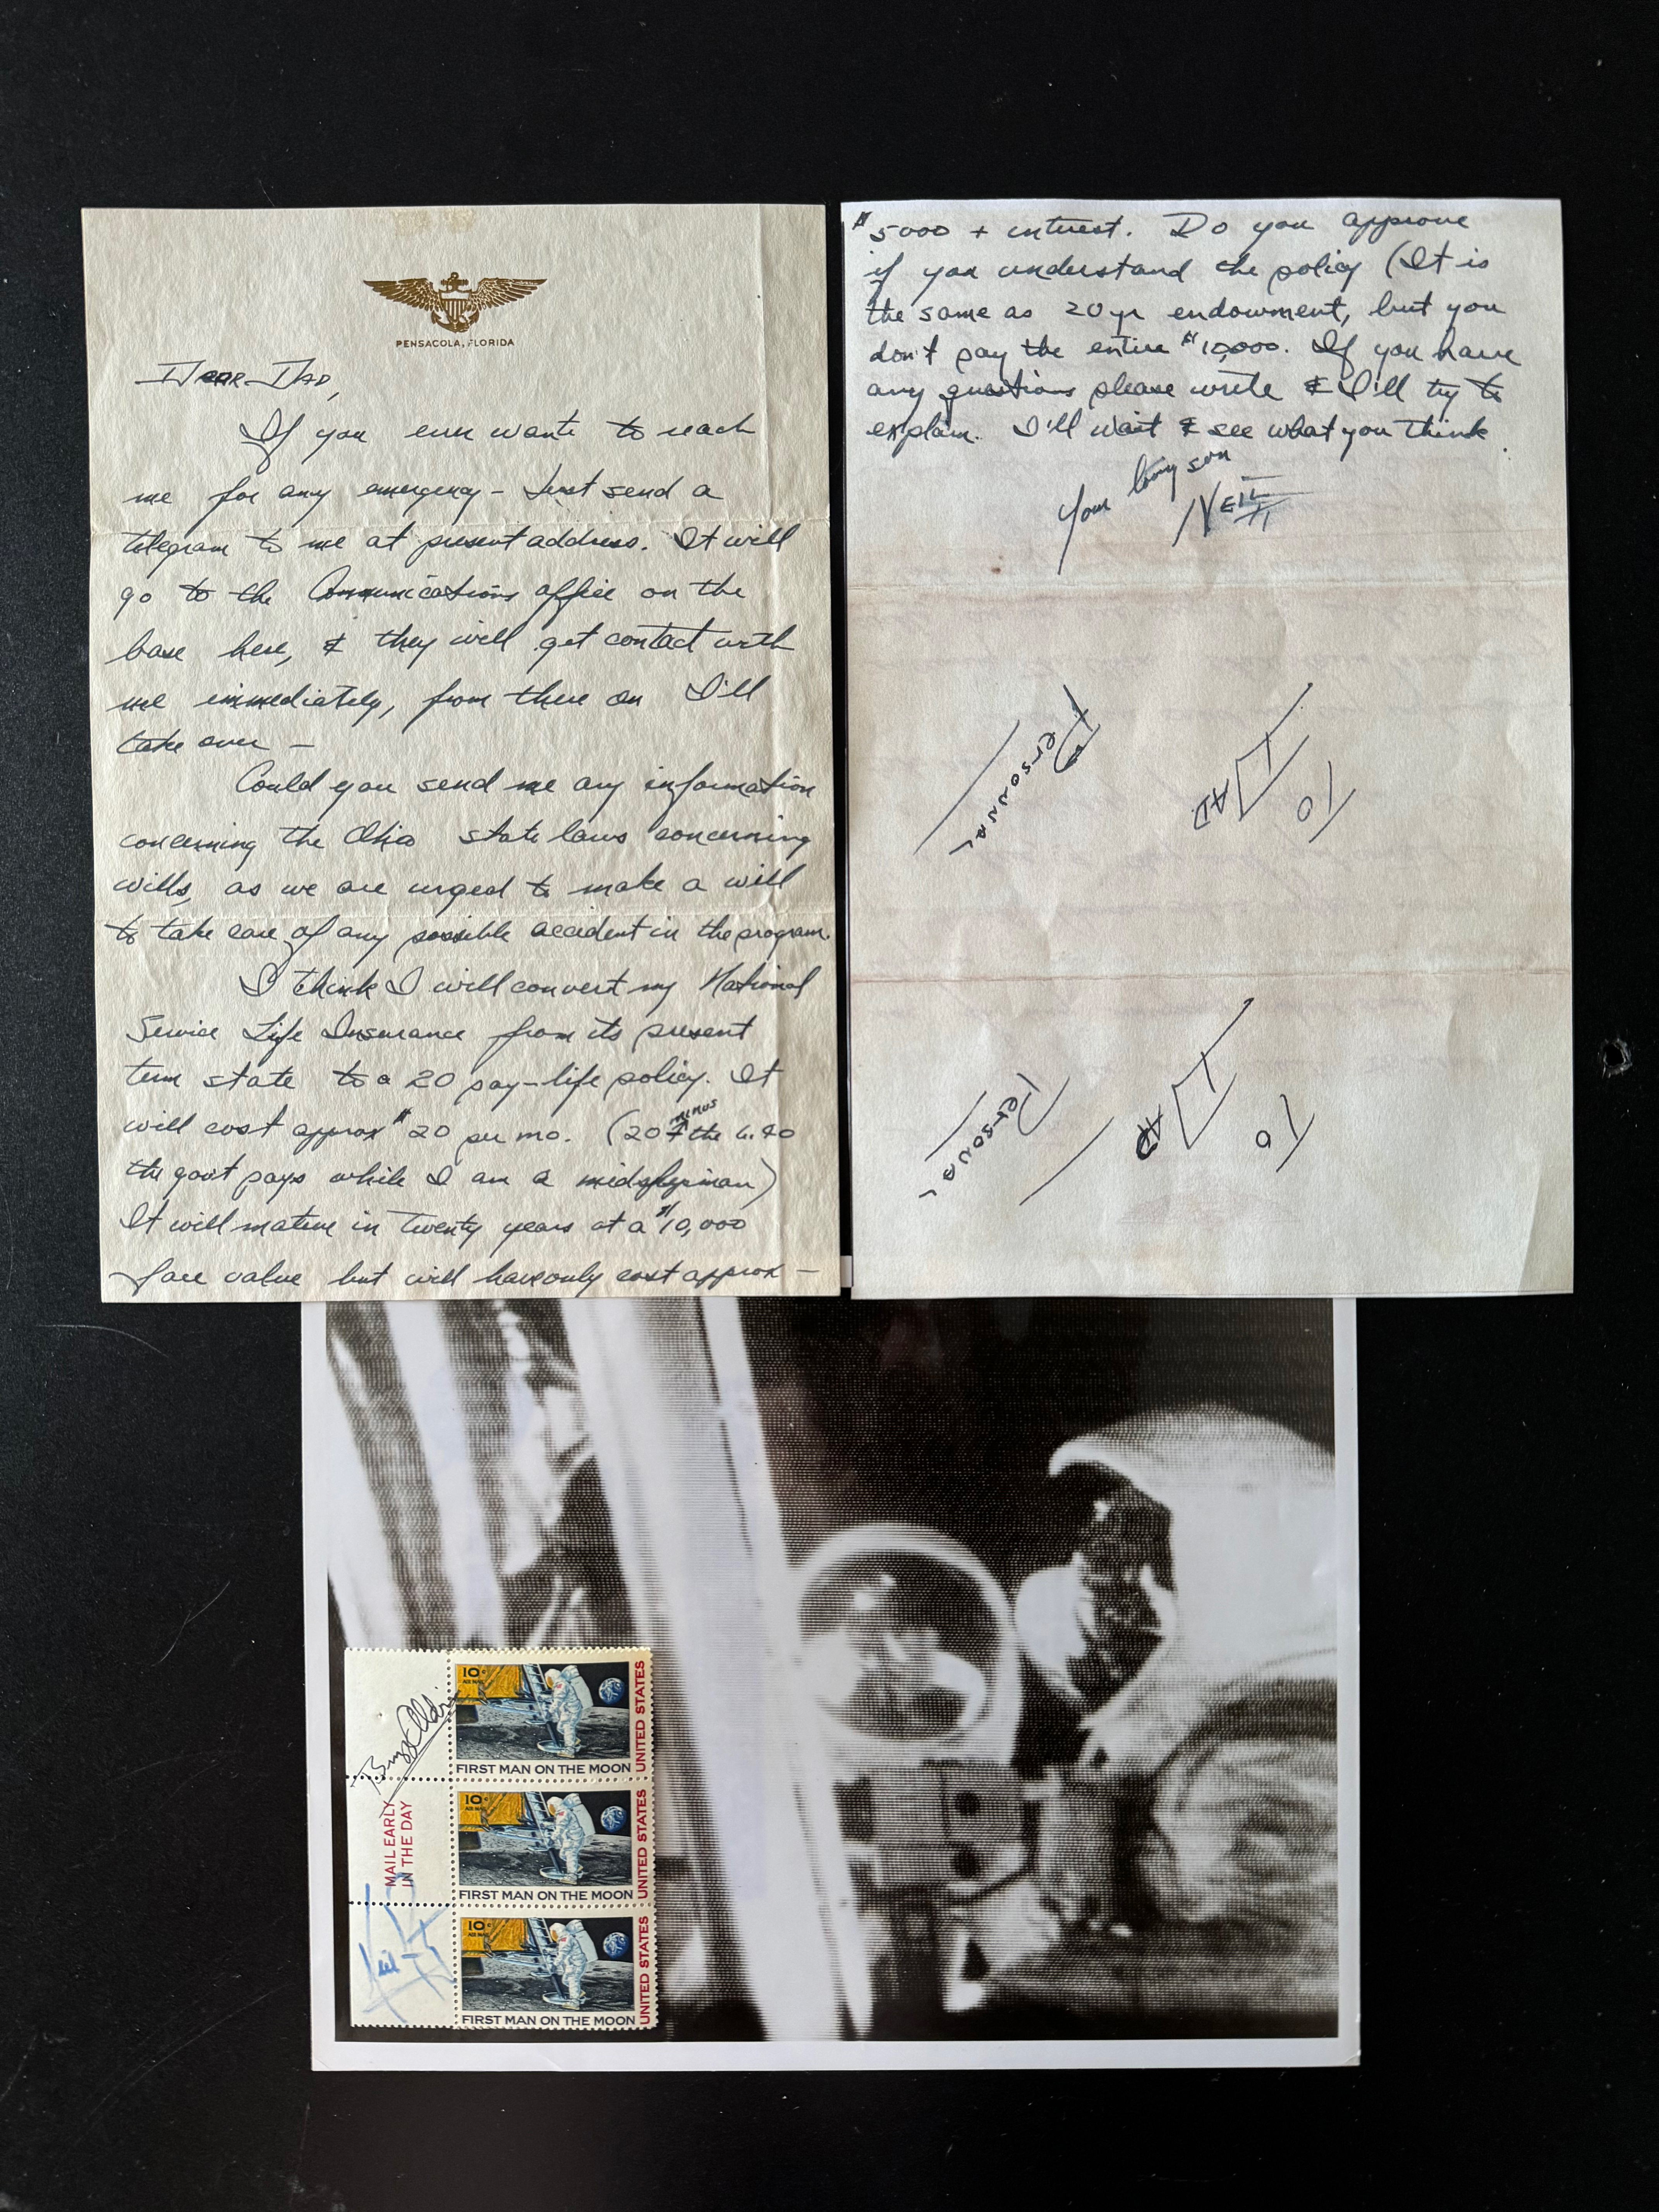 PENSACOLA, FLORIDA
DEAR DAD,
If you ever want to reach
me for any emergency – Just send a
telegram to me at present address. It will
go to the Communications office on the
base here, & they will get contact with
me immediately, from there on I'll
take over –
Could you send me any information
concerning the Ohio state laws concerning
wills, as we are urged to make a will
to take care of any possible accident in the program.
I think I will convert my National
Service Life Insurance from its present
term state to a 20 pay-life policy. It
will cost approx $20 per mo. (20 minus the 6.40
the govt pays while I am a midshipman)
It will mature in twenty years at a $10,000
face value but will have only cost approx –
$5000 + interest. Do you approve
if you understand the policy (It is
the same as 20 yr endowment, but you
don't pay the entire $10,000. If you have
any questions please write & I'll try to
explain. I'll wait & see what you think.
Your loving son
NEIL
Personal
To
DAD
Personal
To
DAD
Buzz Aldrin
MAIL EARLY
IN THE DAY
Neil
10c
AIR MAIL
FIRST MAN ON THE MOON
UNITED STATES
10c
AIR MAIL
FIRST MAN ON THE MOON
UNITED STATES
10c
AIR MAIL
FIRST MAN ON THE MOON
UNITED STATES